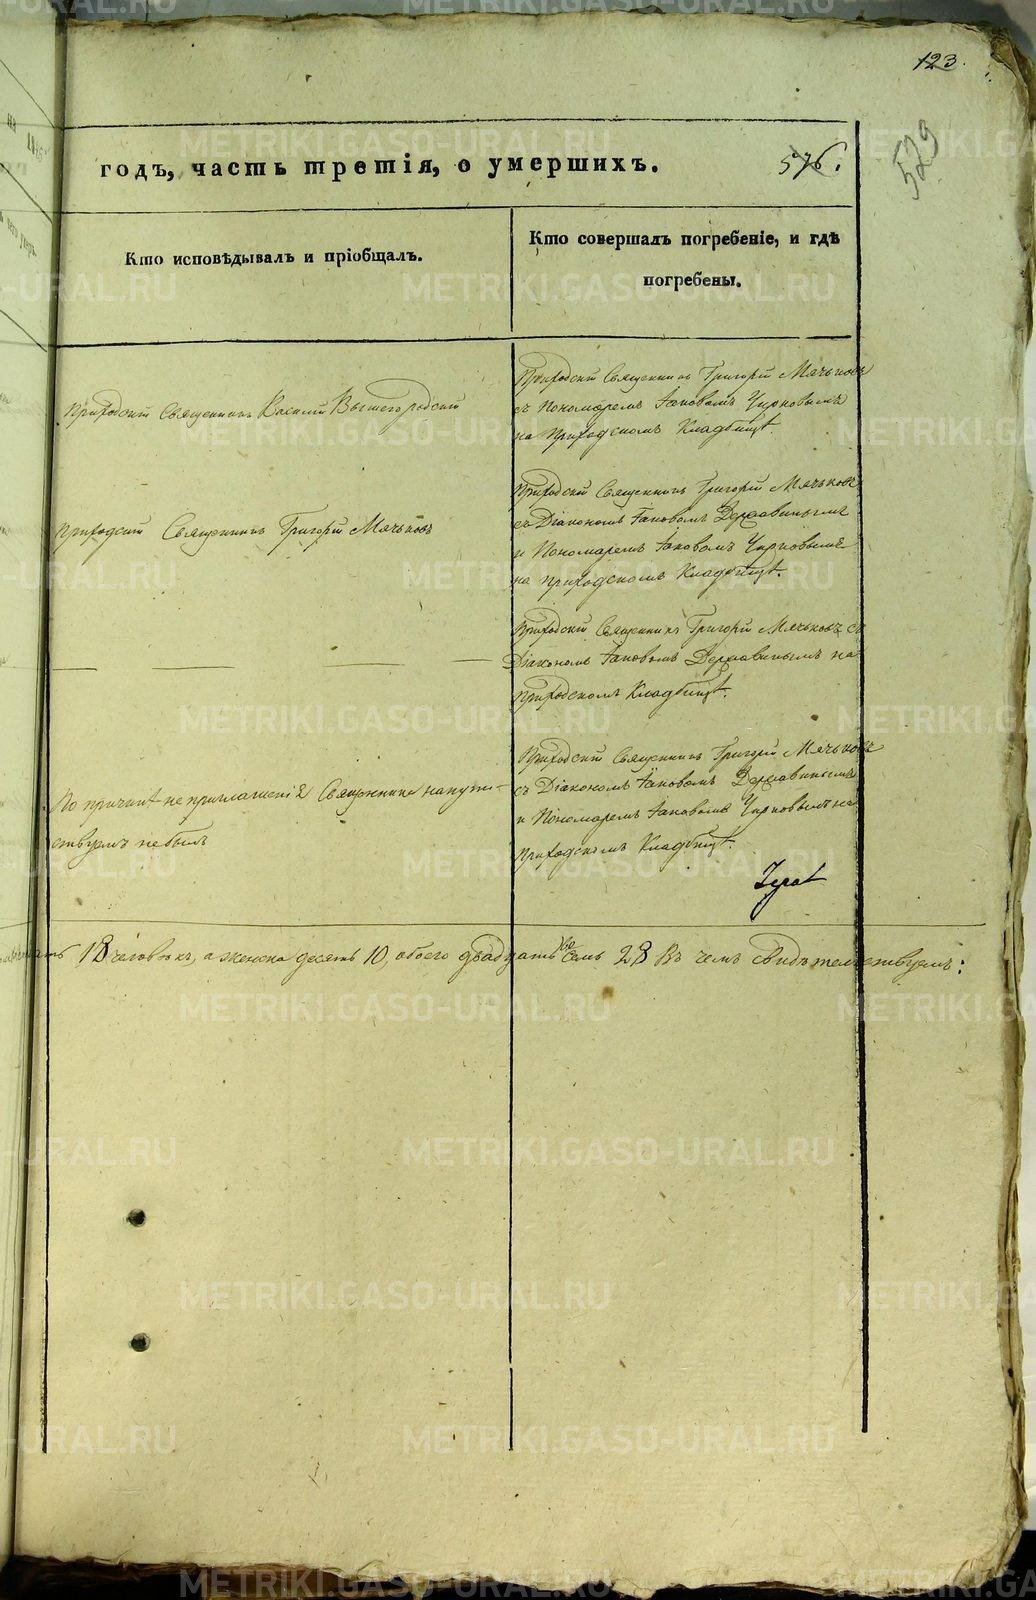 123.
529
годъ, часть третія, о умершихъ.
576.
Кто исповѣдывалъ и пріобщалъ.
Кто совершалъ погребеніе, и гдѣ
погребены.
Приходскій Священникъ Василій Вышегородскій
Приходскій Священникъ Григорій Мячьковъ
съ Пономаремъ Іаковомъ Чирковымъ
на приходскомъ Кладбищѣ.
Приходскій Священникъ Григорій Мячьковъ
Приходскій Священникъ Григорій Мячьковъ
съ Діакономъ Іаковомъ Державинымъ
и Пономаремъ Іаковомъ Чирковымъ
на приходскомъ Кладбищѣ.
Приходскій Священникъ Григорій Мячьковъ съ
Діакономъ Іаковомъ Державинымъ на
приходскомъ Кладбищѣ.
По причинѣ не приглашенія Священника напут-
ствуемъ небылъ
Приходскій Священникъ Григорій Мячьковъ
съ Діакономъ Іаковомъ Державинымъ
и Пономаремъ Іаковомъ Чирковымъ на
приходскомъ Кладбищѣ.
18 человѣкъ, а женска десять 10, обоего двадцать восемь 28 Въ чемъ свидѣтельствуемъ:
METRIKI.GASO-URAL.RU